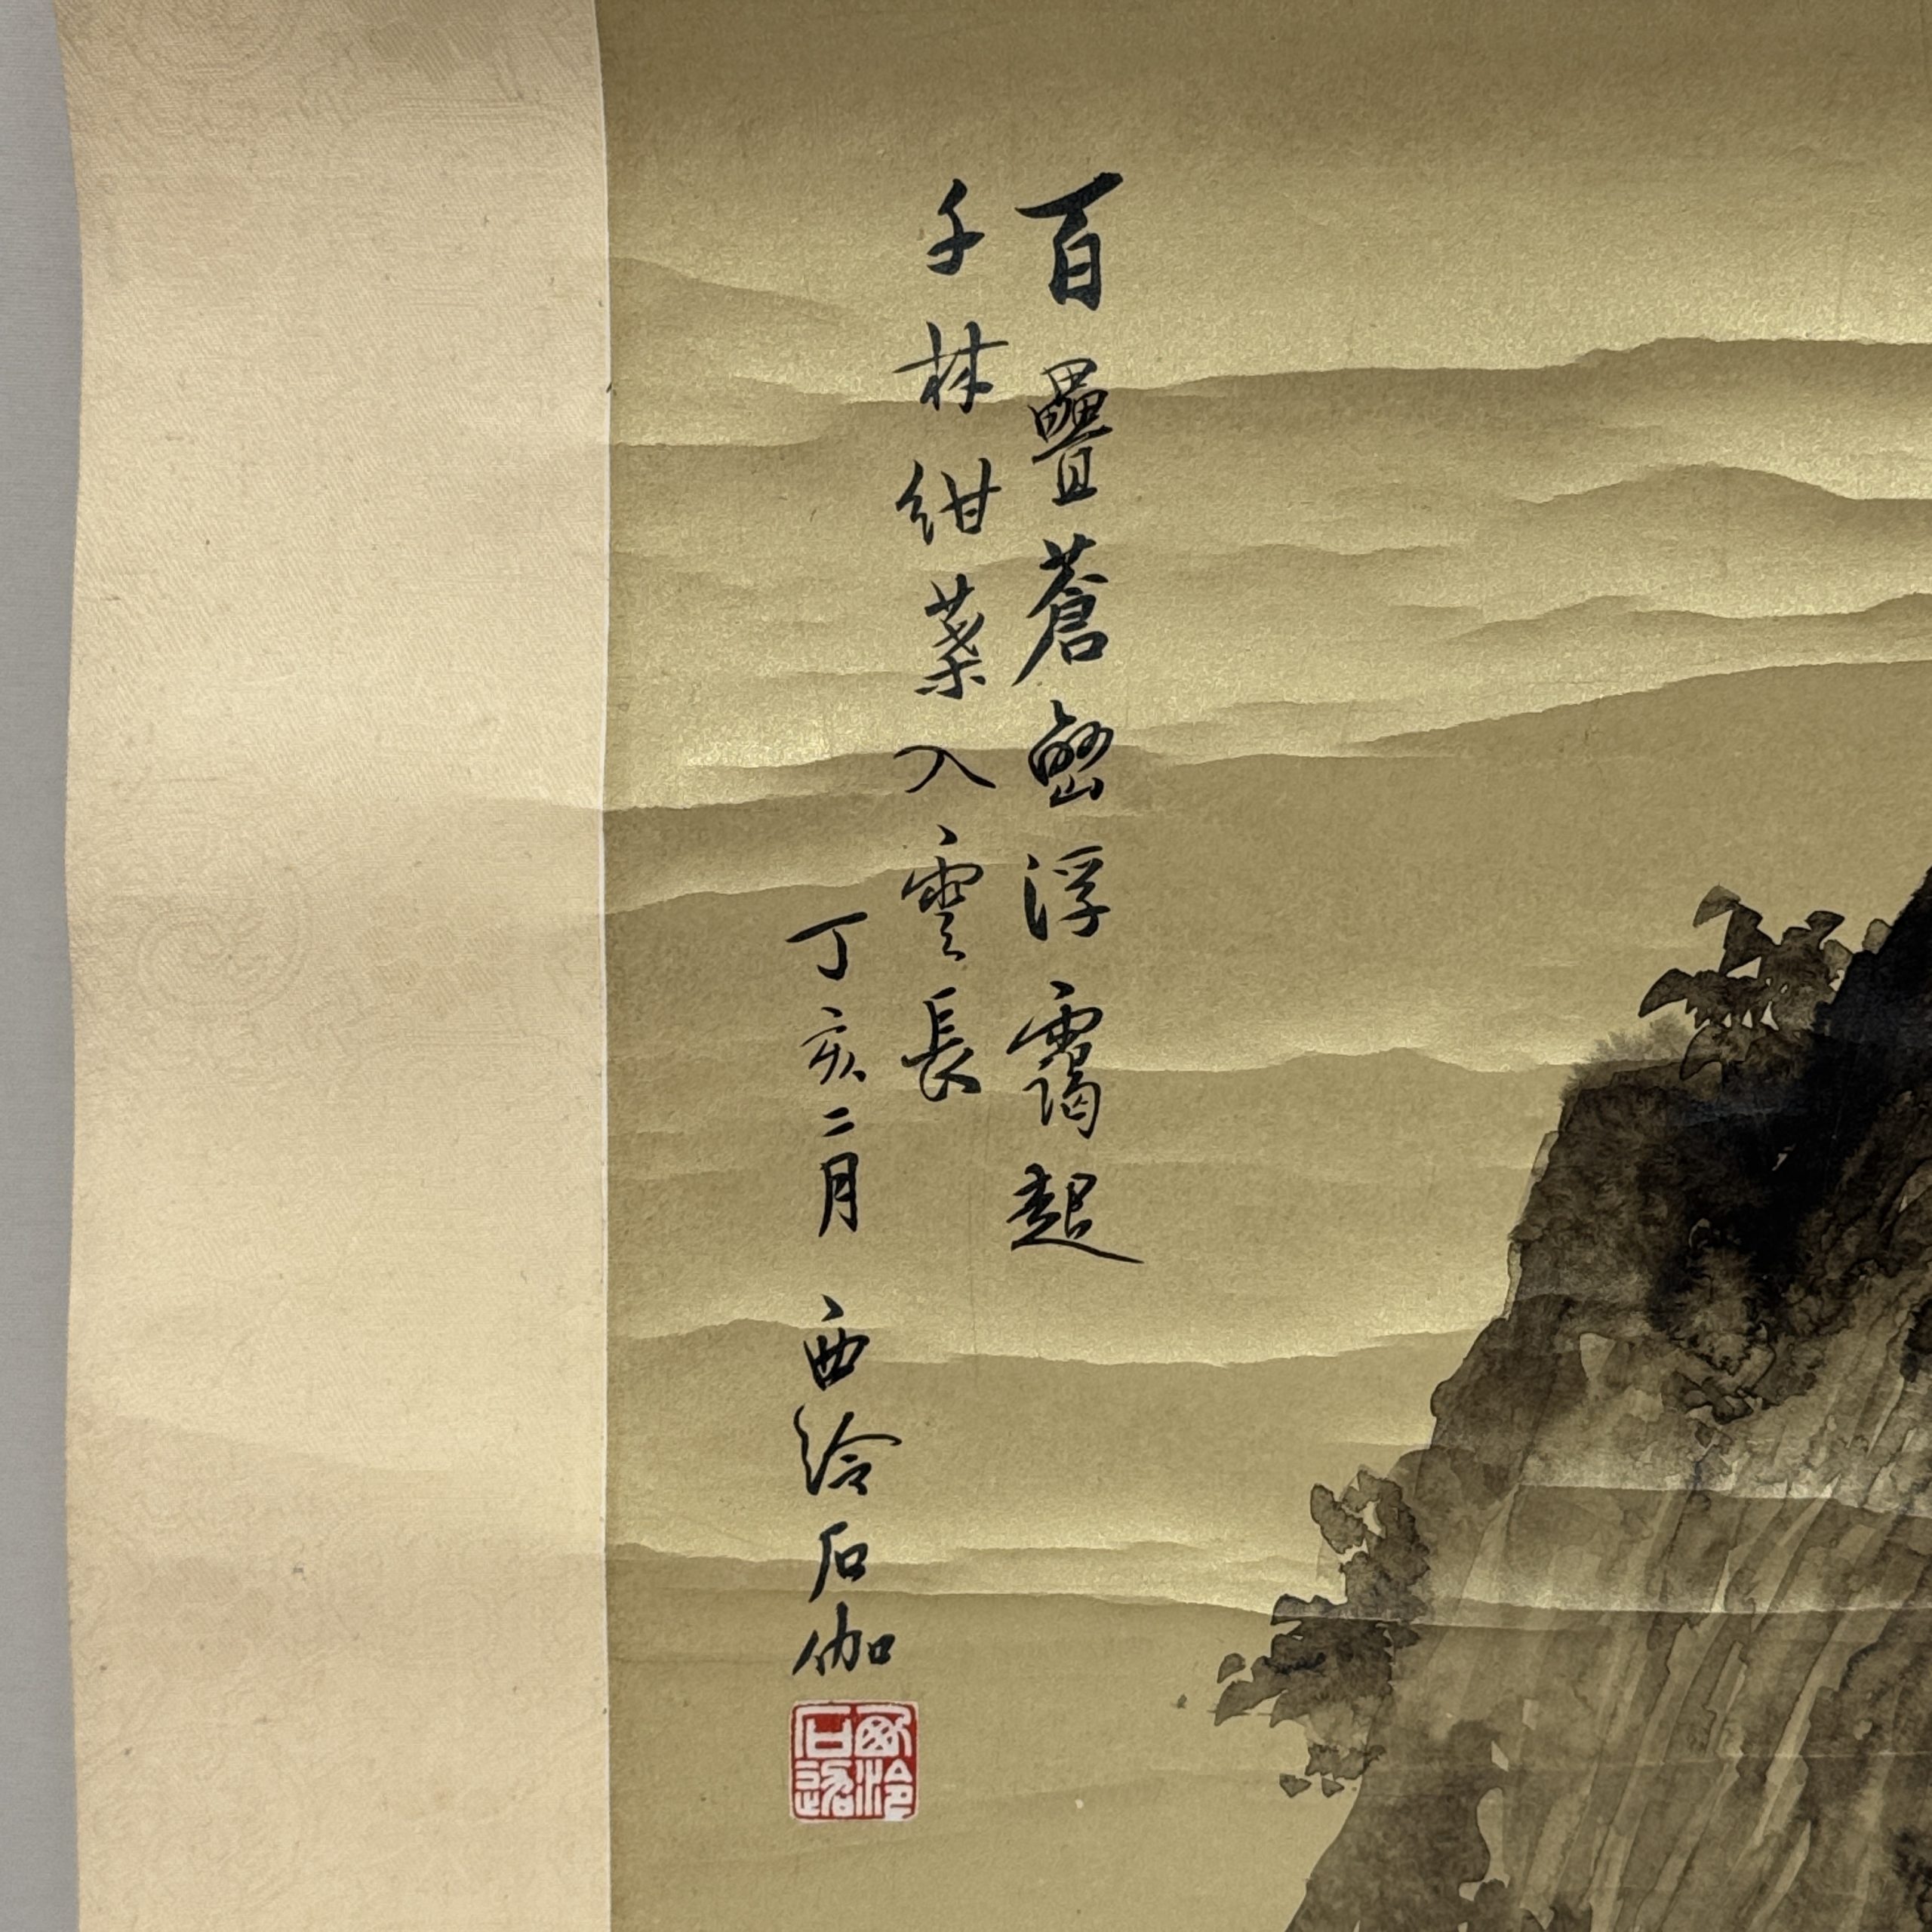 百疊蒼巒浮靄起
千林紺葉入雲長
丁亥二月 西泠石伽
西泠石伽